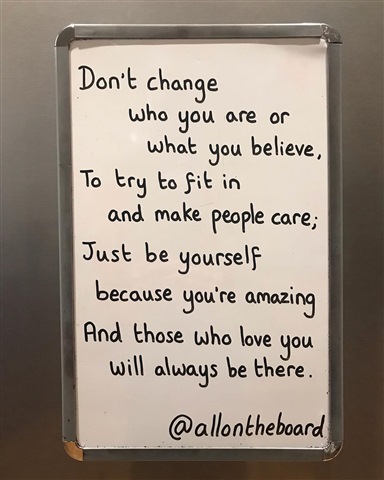 Don't change
who you are or
what you believe,
To try to fit in
and make people care;
Just be yourself
because you're amazing
And those who love you
will always be there.
@allontheboard